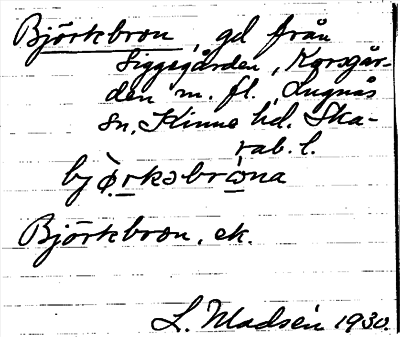 Björkbron, gd från
Siggegården, Korsgår-
den m. fl., Lugnås
sn, Kinne hd. Ska-
rab. l.
bjørkəbrona
Björkbron, ek.
L. Madsén 1930.